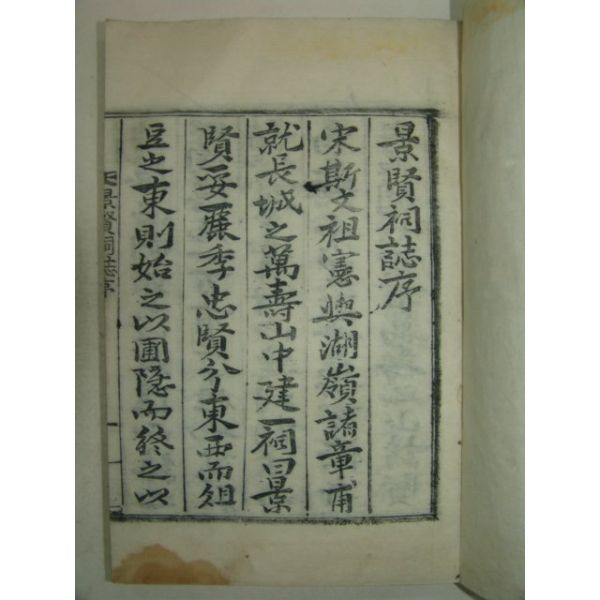 景賢祠誌序
宋斯文祖憲與湖嶺諸章甫
就長城之萬壽山中建一祠曰景
賢妥麗季忠賢分東西而俎
豆之東則始之以圃隐而終之以
景賢祠誌序